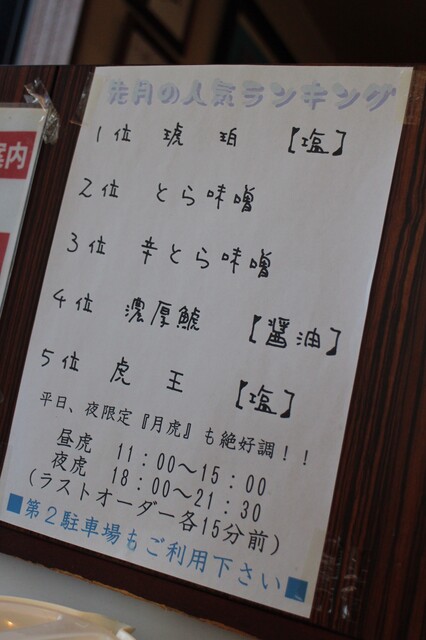 先月の人気ランキング
1位 琥珀 【塩】
2位 とら味噌
3位 辛とら味噌
4位 濃厚鯱 【醤油】
5位 虎王 【塩】
平日、夜限定『月虎』も絶好調！！
昼虎 11：00～15：00
夜虎 18：00～21：30
(ラストオーダー各15分前)
■第2駐車場もご利用下さい■
案内